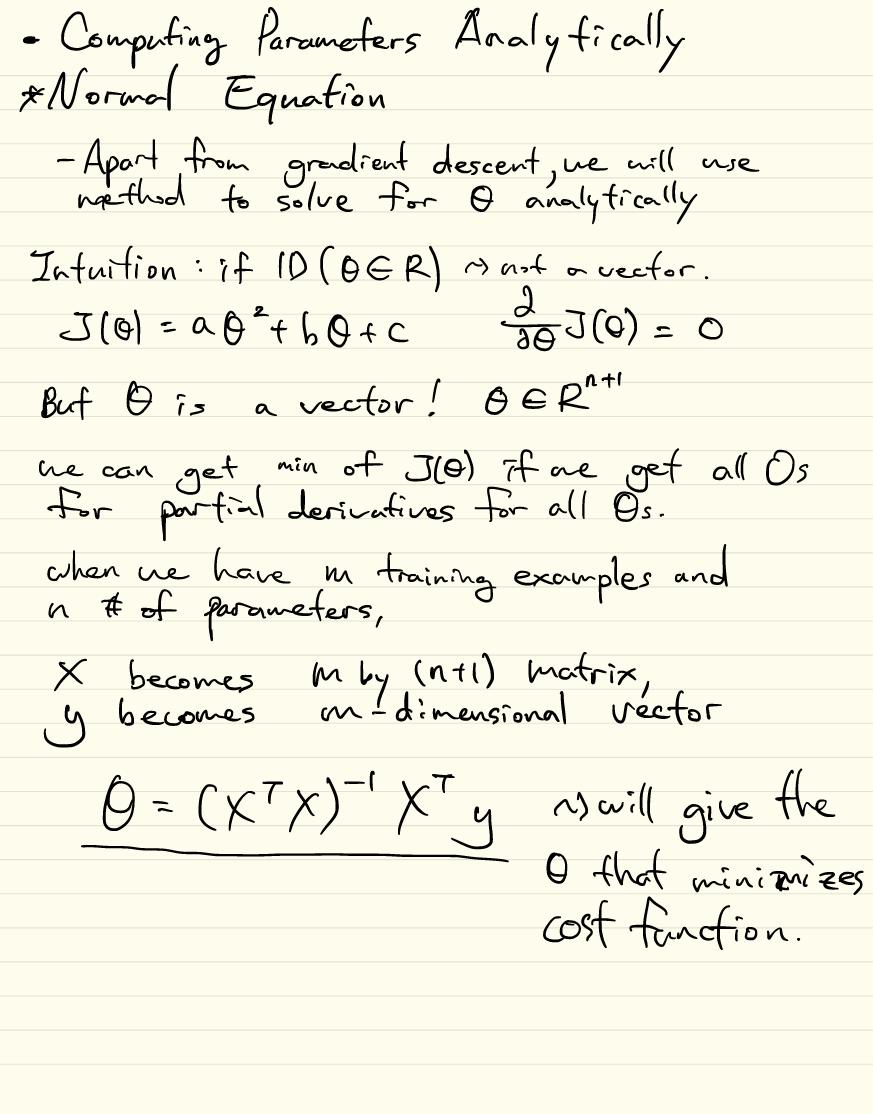 • Computing Parameters Analytically
*Normal Equation
- Apart from gradient descent, we will use
method to solve for θ analytically
Intuition : if 1D (θ ∈ R) ⇝ not a vector.
J(θ) = aθ² + bθ + c ∂/∂θ J(θ) = 0
But θ is a vector! θ ∈ Rⁿ⁺¹
we can get min of J(θ) if we get all 0s
for partial derivatives for all θs.
when we have m training examples and
n # of parameters,
X becomes m by (n+1) matrix,
y becomes m-dimensional vector
θ = (XᵀX)⁻¹ Xᵀy ⇝ will give the
θ that minimizes
cost function.